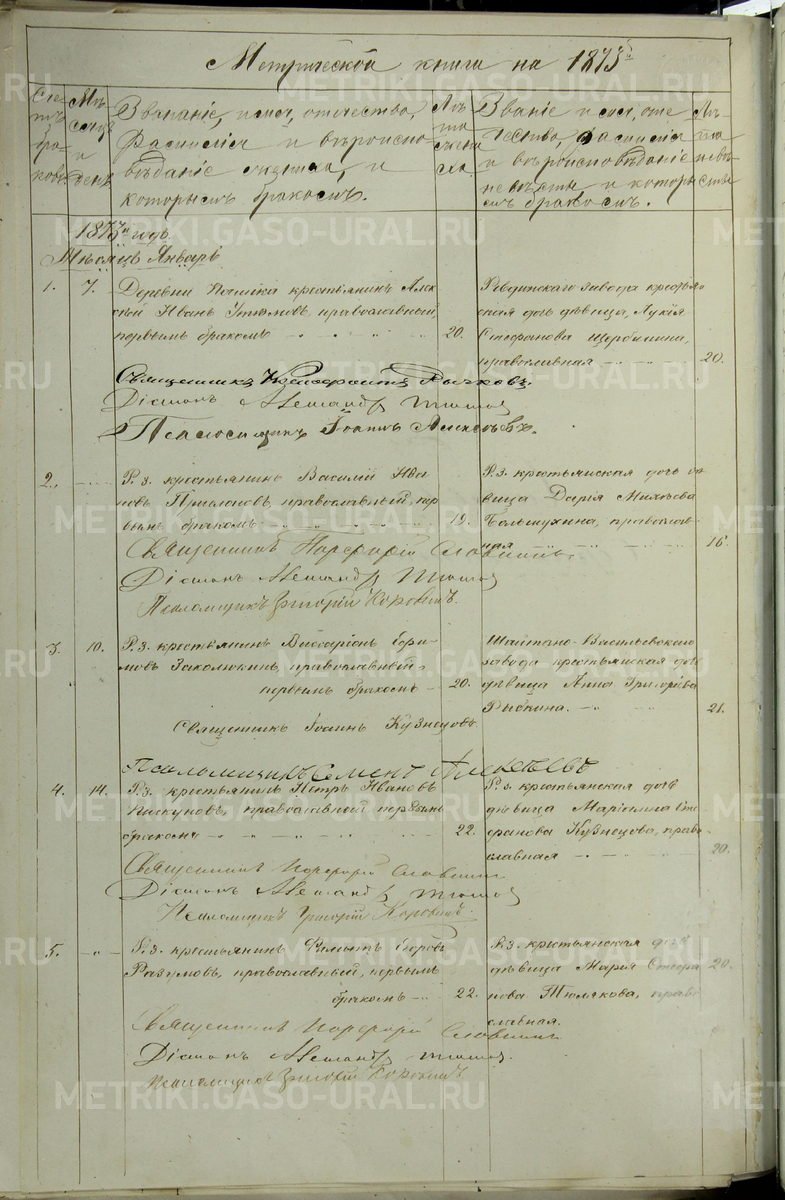 Метрической книги на 1873й
Счетъ браковъ.
Мѣсяцъ и день.
Званіе, имя, отчество,
фамилія и вѣроиспо-
вѣданіе жениха, и
которымъ бракомъ.
Лѣта жениха.
Званіе, имя, отче-
ство, фамилія
и вѣроисповѣданіе
невѣсты, и которы-
мъ бракомъ.
Лѣта невѣсты
1873й годъ.
Мѣсяцъ Январь
1. 7. Деревни крестьянинъ Алек-
сѣй Ивановъ православный,
первымъ бракомъ 20.
Ревдинскаго завода кресть-
ская дочь дѣвица, Лукія
Стефанова Щербинина,
православная 20.
Священникъ Рычковъ.
Діаконъ Александръ
Псаломщикъ Іоаннъ Алексѣевъ.
2. Р. з. крестьянинъ Василій Ива-
новъ православный, пер-
вымъ бракомъ 19.
Р. з. крестьянская дочь дѣ-
вица Дарія
православ-
ная 16.
Священникъ Порфирій Словцовъ.
Діаконъ Александръ
Псаломщикъ Григорій Коровинъ.
3. 10. Р. з. крестьянинъ Виссаріонъ
православный,
первымъ бракомъ 20.
Шайтано-Васильевскаго
завода крестьянская дочь
дѣвица Анна Григорьева
Рыбкина. 21.
Священникъ Іоаннъ Кузнецовъ.
Псаломщикъ Семенъ Алексѣевъ
4. 14. Р. з. крестьянинъ Петръ Ивановъ
Пискуновъ, православный первымъ
бракомъ 22.
Р. з. крестьянская дочь
дѣвица Маріамна Сте-
фанова Кузнецова, право-
славная 20.
Священникъ Порфирій Словцовъ
Діаконъ Александръ
Псаломщикъ Григорій Коровинъ.
5. Р. з. крестьянинъ
Разумовъ, православный, первымъ
бракомъ 22.
Р. з. крестьянская дочь
дѣвица Марія Стефа- 20.
нова Тюлякова, право-
славная.
Священникъ Порфирій Словцовъ
Діаконъ Александръ
Псаломщикъ Григорій Коровинъ
METRIKI.GASO-URAL.RU